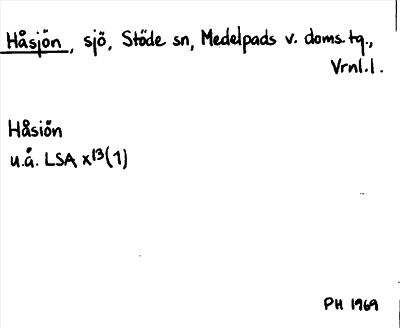 Håsjön, sjö, Stöde sn, Medelpads v. doms.tg.,
Vrnl.l.
Håsiön
u.å. LSA x13(1)
PH 1969